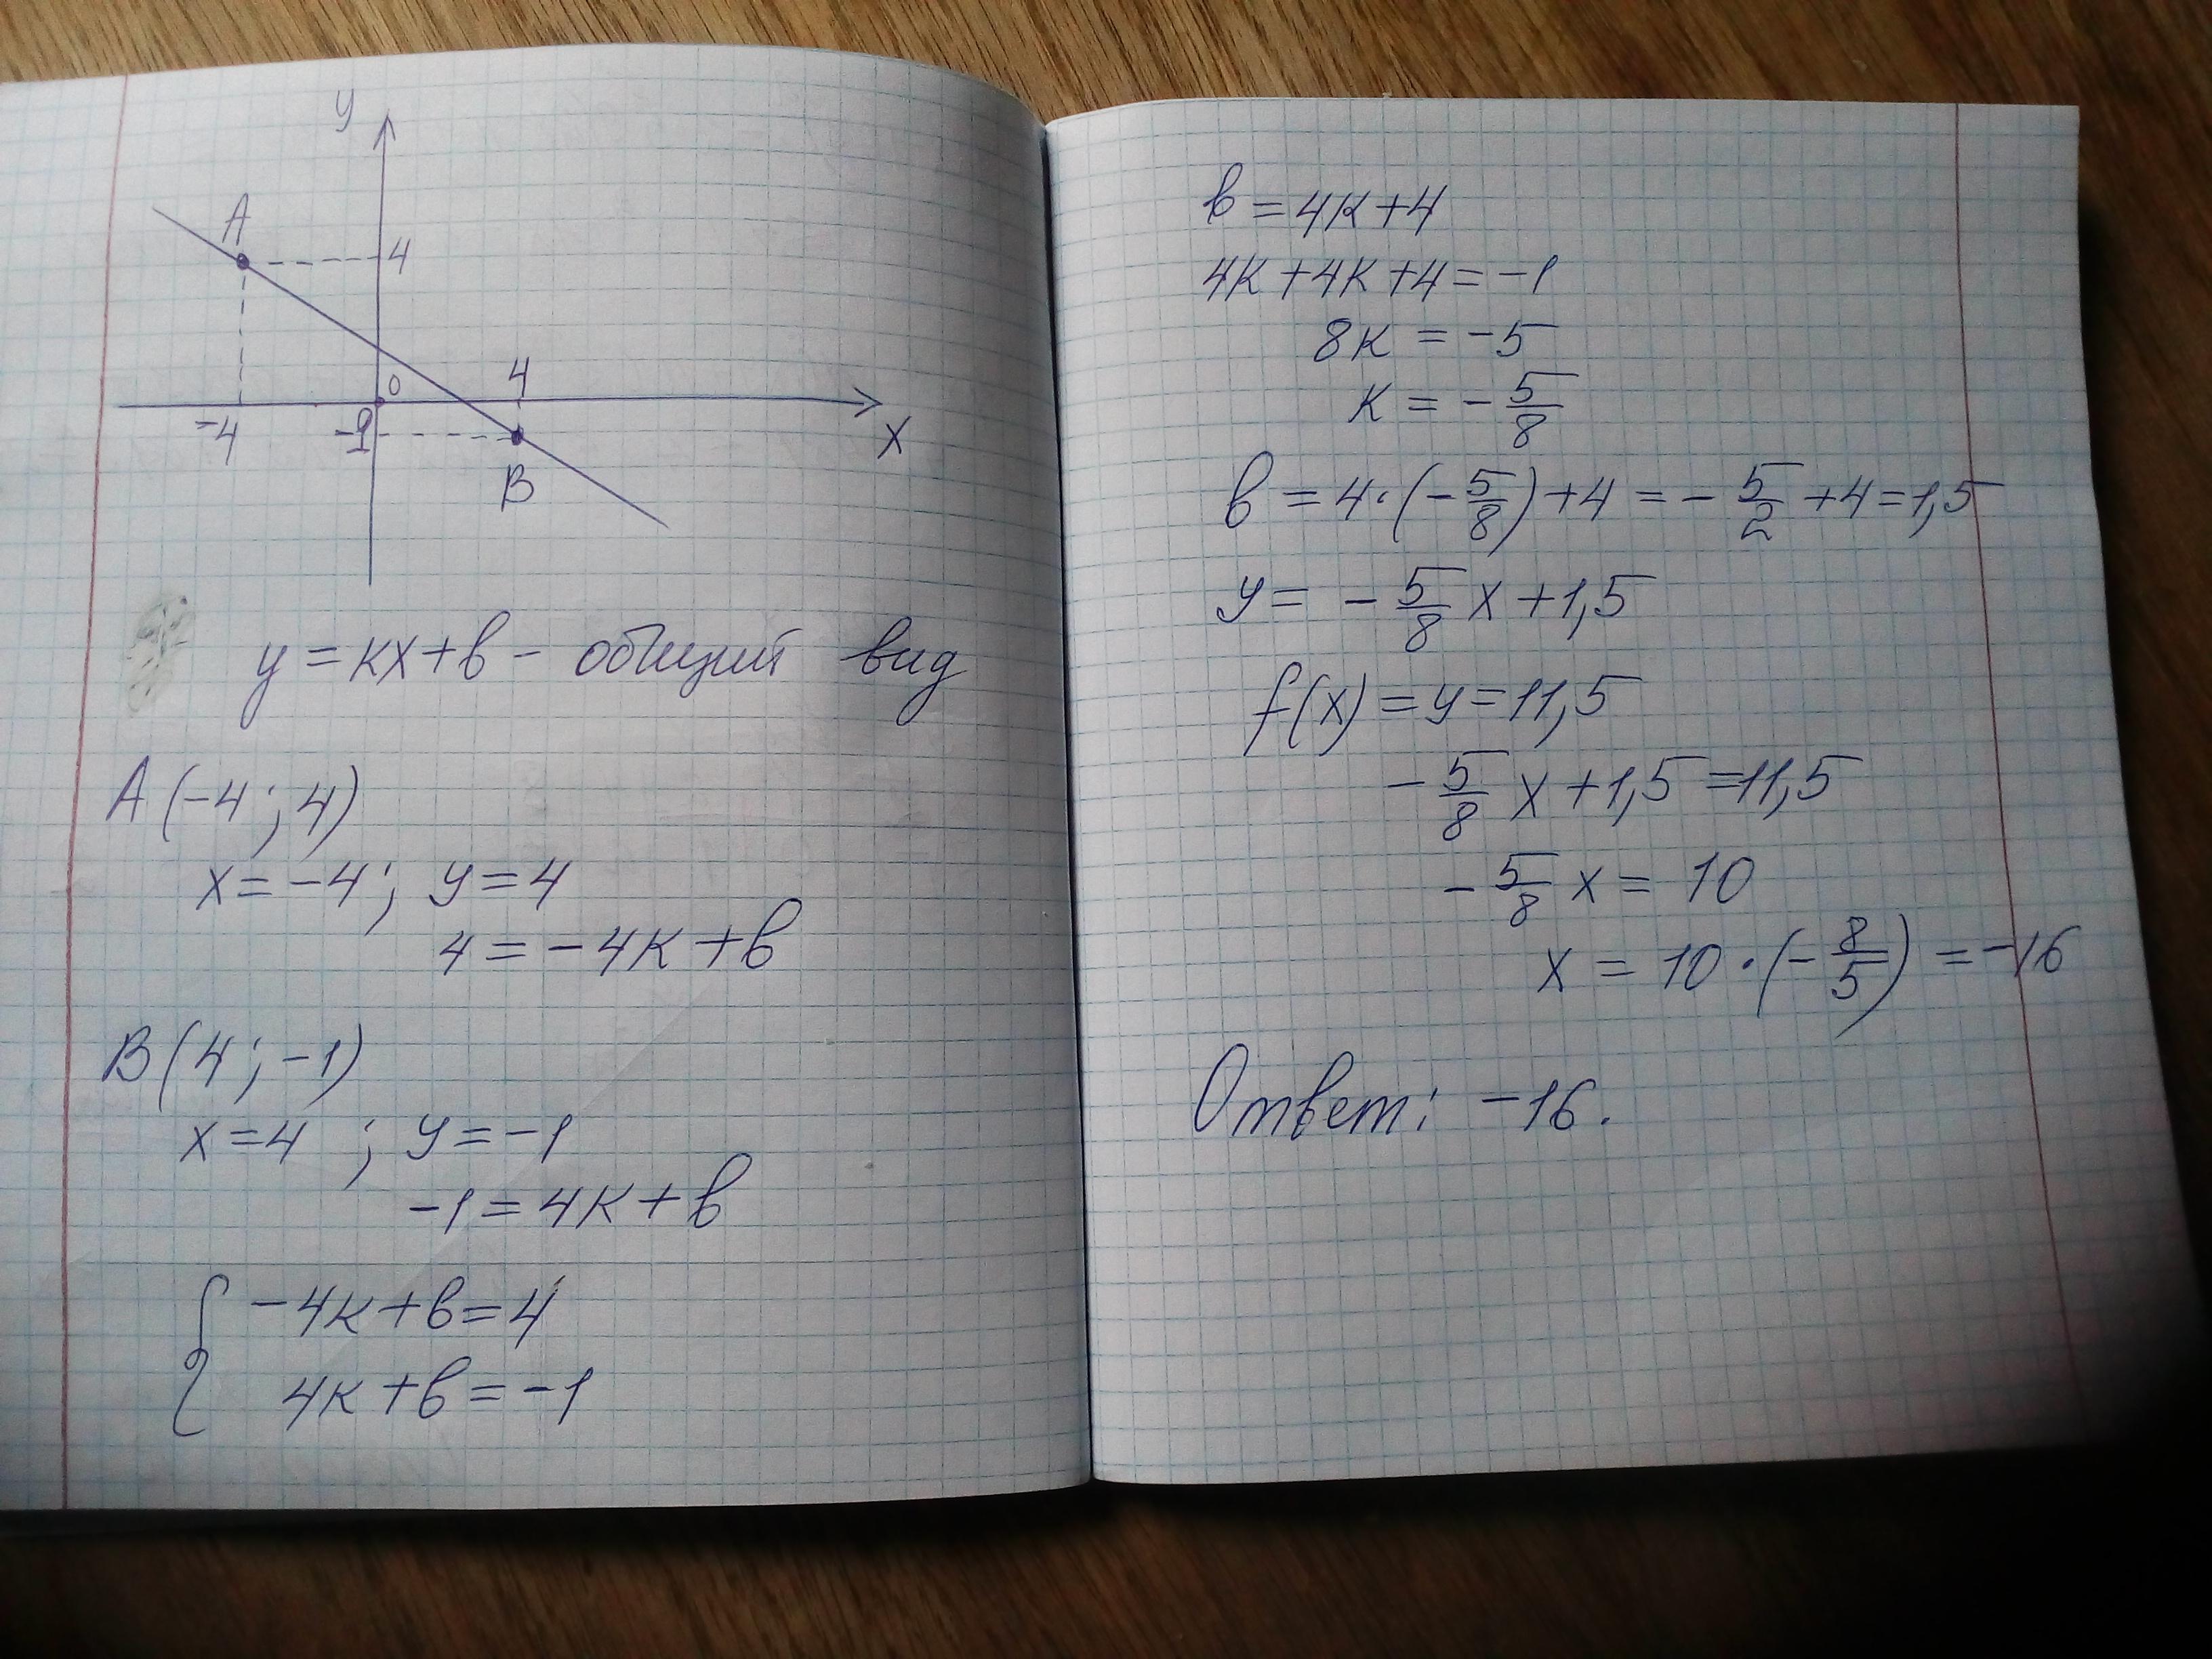 y
A
4
4
0
-4
-1
x
B
y = kx + b - общий вид
A (-4 ; 4)
x = -4 ; y = 4
4 = -4k + b
B (4 ; -1)
x = 4 ; y = -1
-1 = 4k + b
{ -4k + b = 4
4k + b = -1
b = 4k + 4
4k + 4k + 4 = -1
8k = -5
k = - 5/8
b = 4 · (- 5/8) + 4 = - 5/2 + 4 = 1,5
y = - 5/8 x + 1,5
f(x) = y = 11,5
- 5/8 x + 1,5 = 11,5
- 5/8 x = 10
x = 10 · (- 8/5) = -16
Ответ: -16.